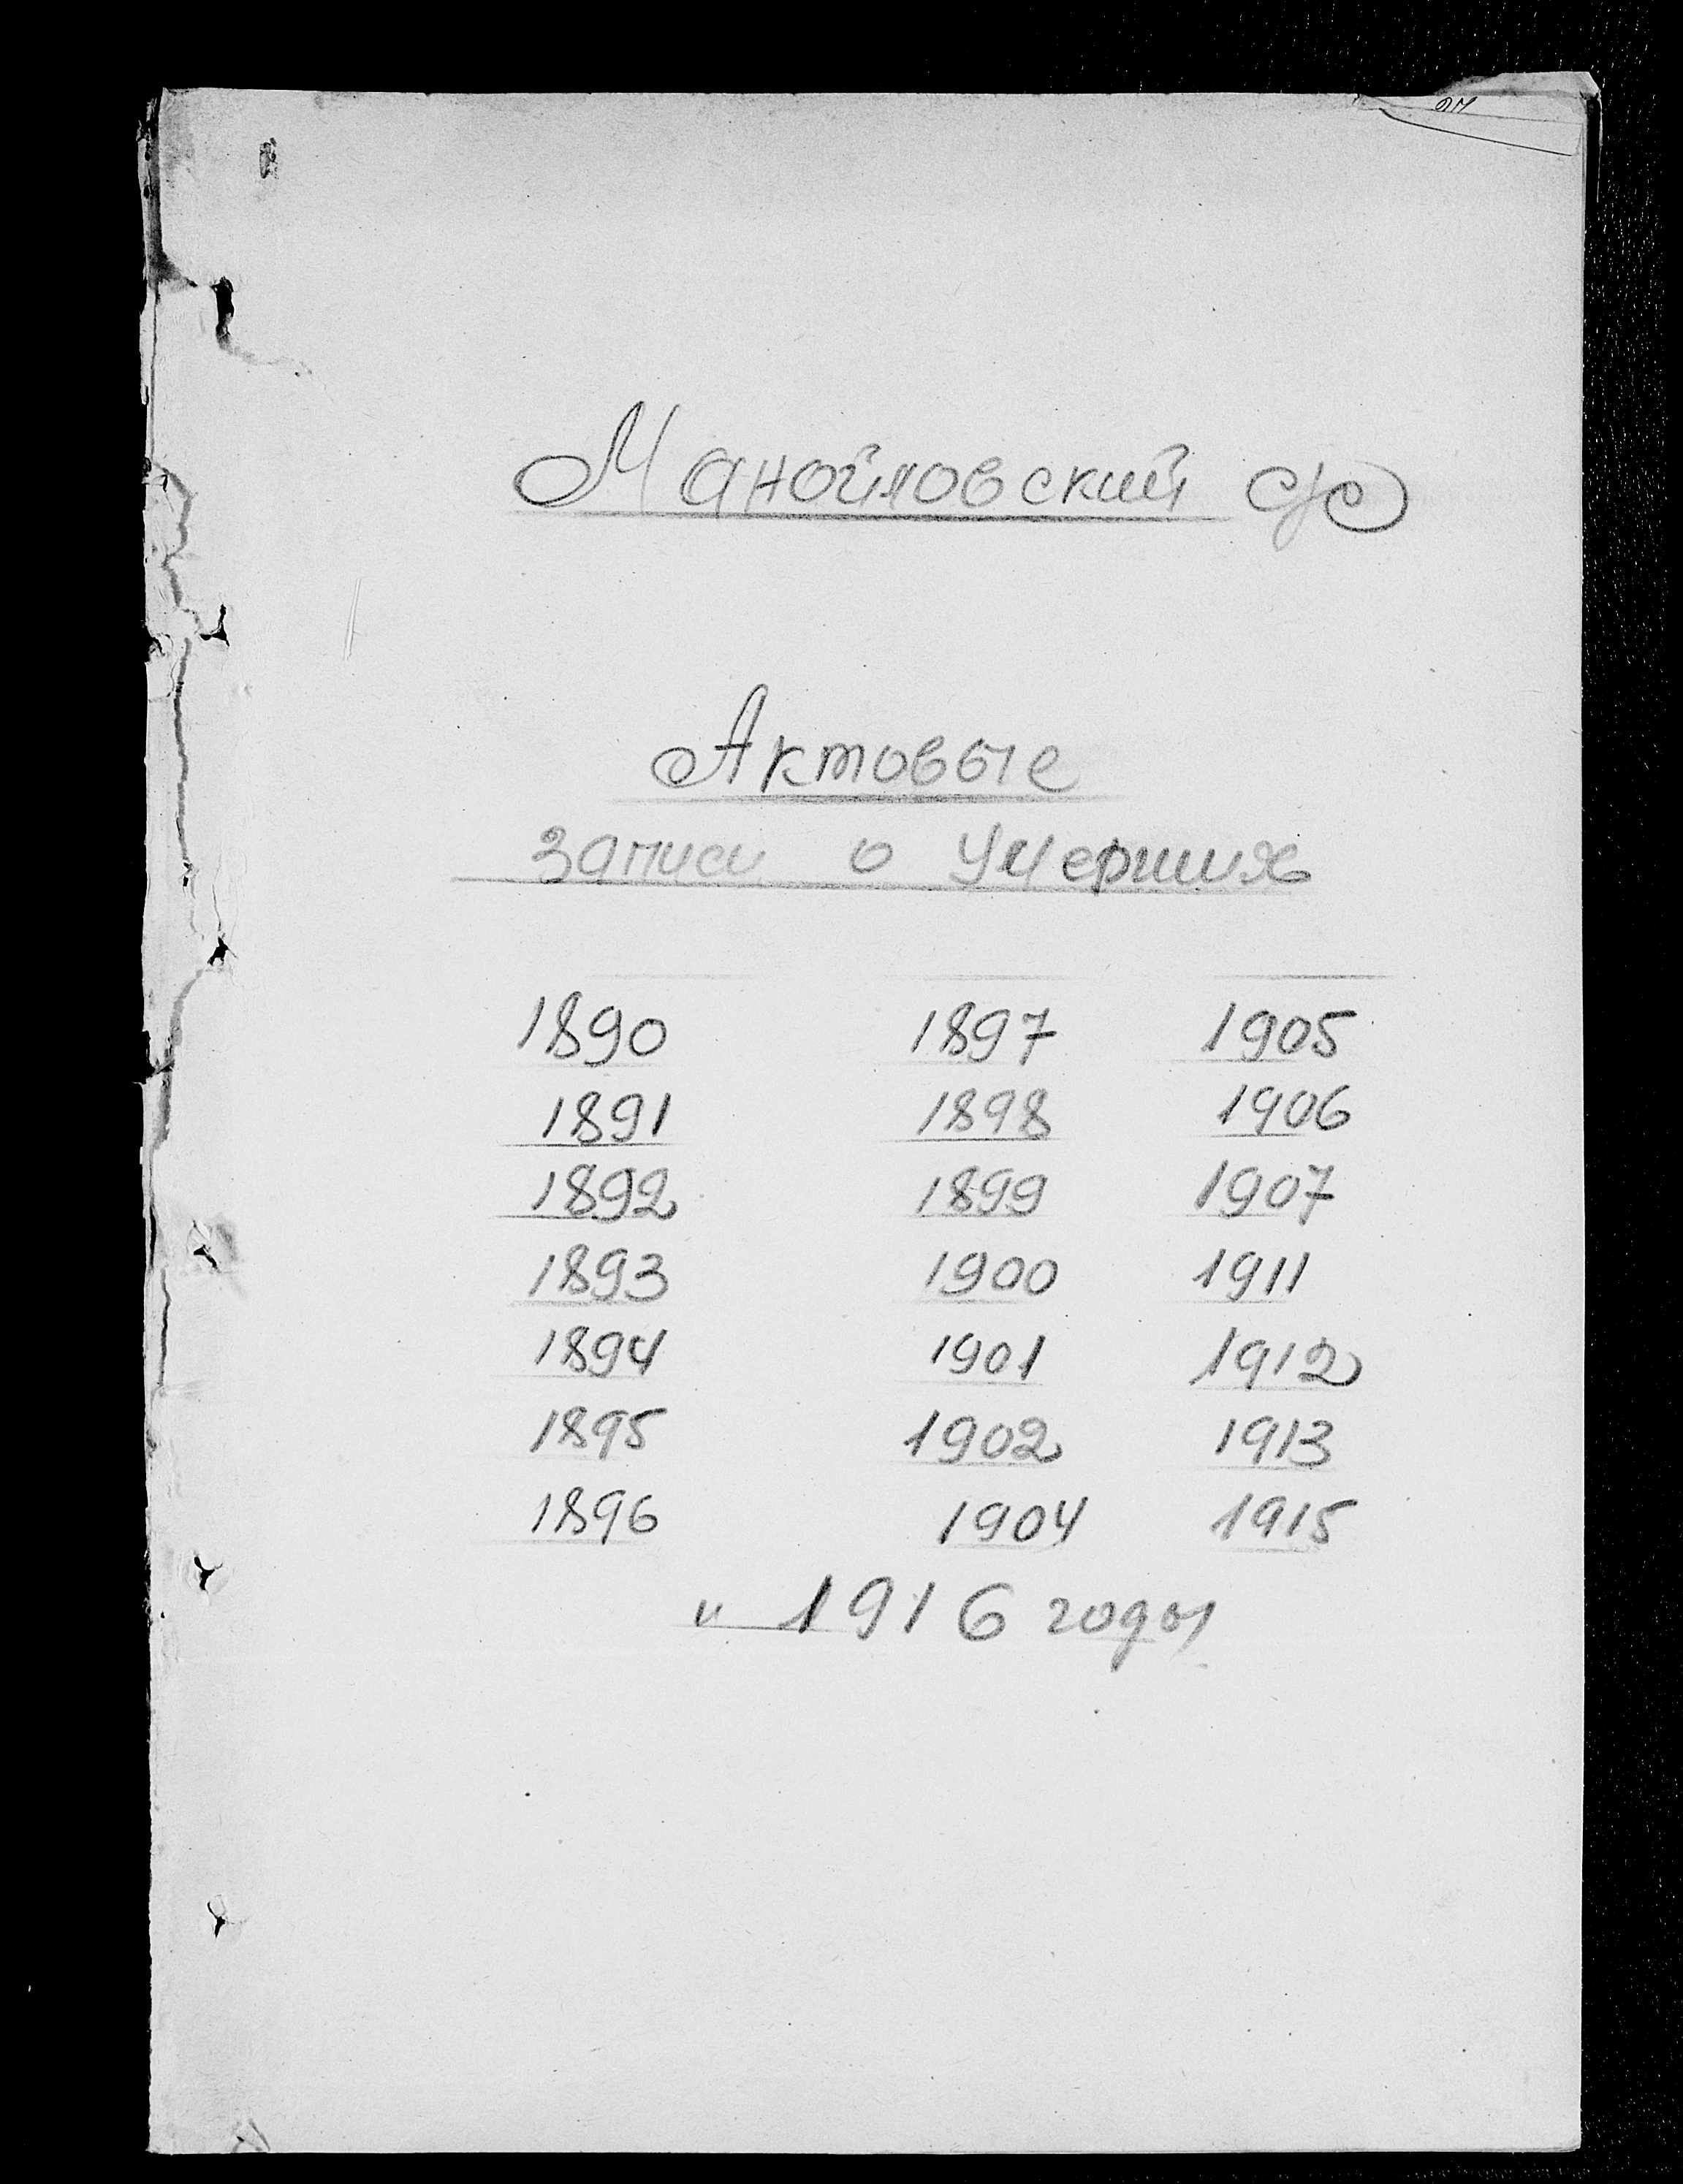 Манойловский с/с
Актовые
записи о умерших
1890 1897 1905
1891 1898 1906
1892 1899 1907
1893 1900 1911
1894 1901 1912
1895 1902 1913
1896 1904 1915
и 1916 годы